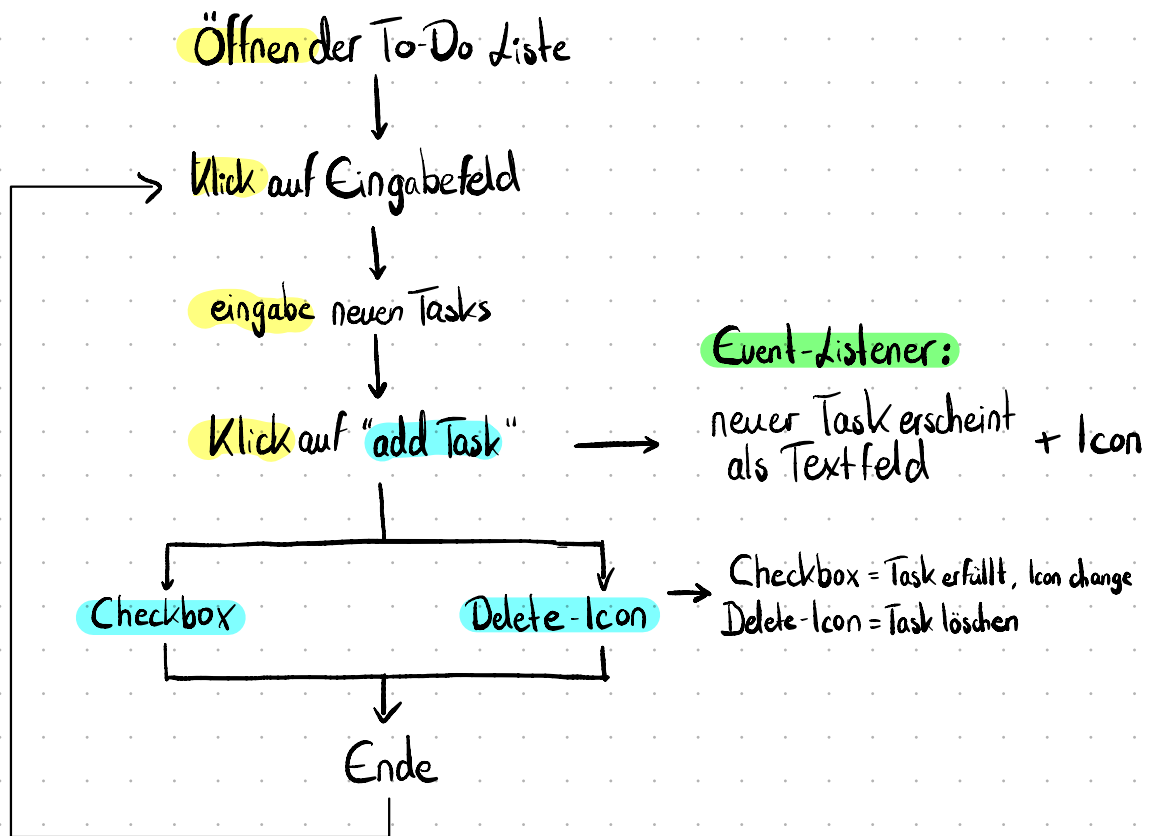 Öffnen der To-Do Liste
Klick auf Eingabefeld
eingabe neuen Tasks
Klick auf "add Task"
Event-Listener:
neuer Task erscheint
als Textfeld
+ Icon
Checkbox
Delete-Icon
Checkbox = Task erfüllt, Icon change
Delete-Icon = Task löschen
Ende